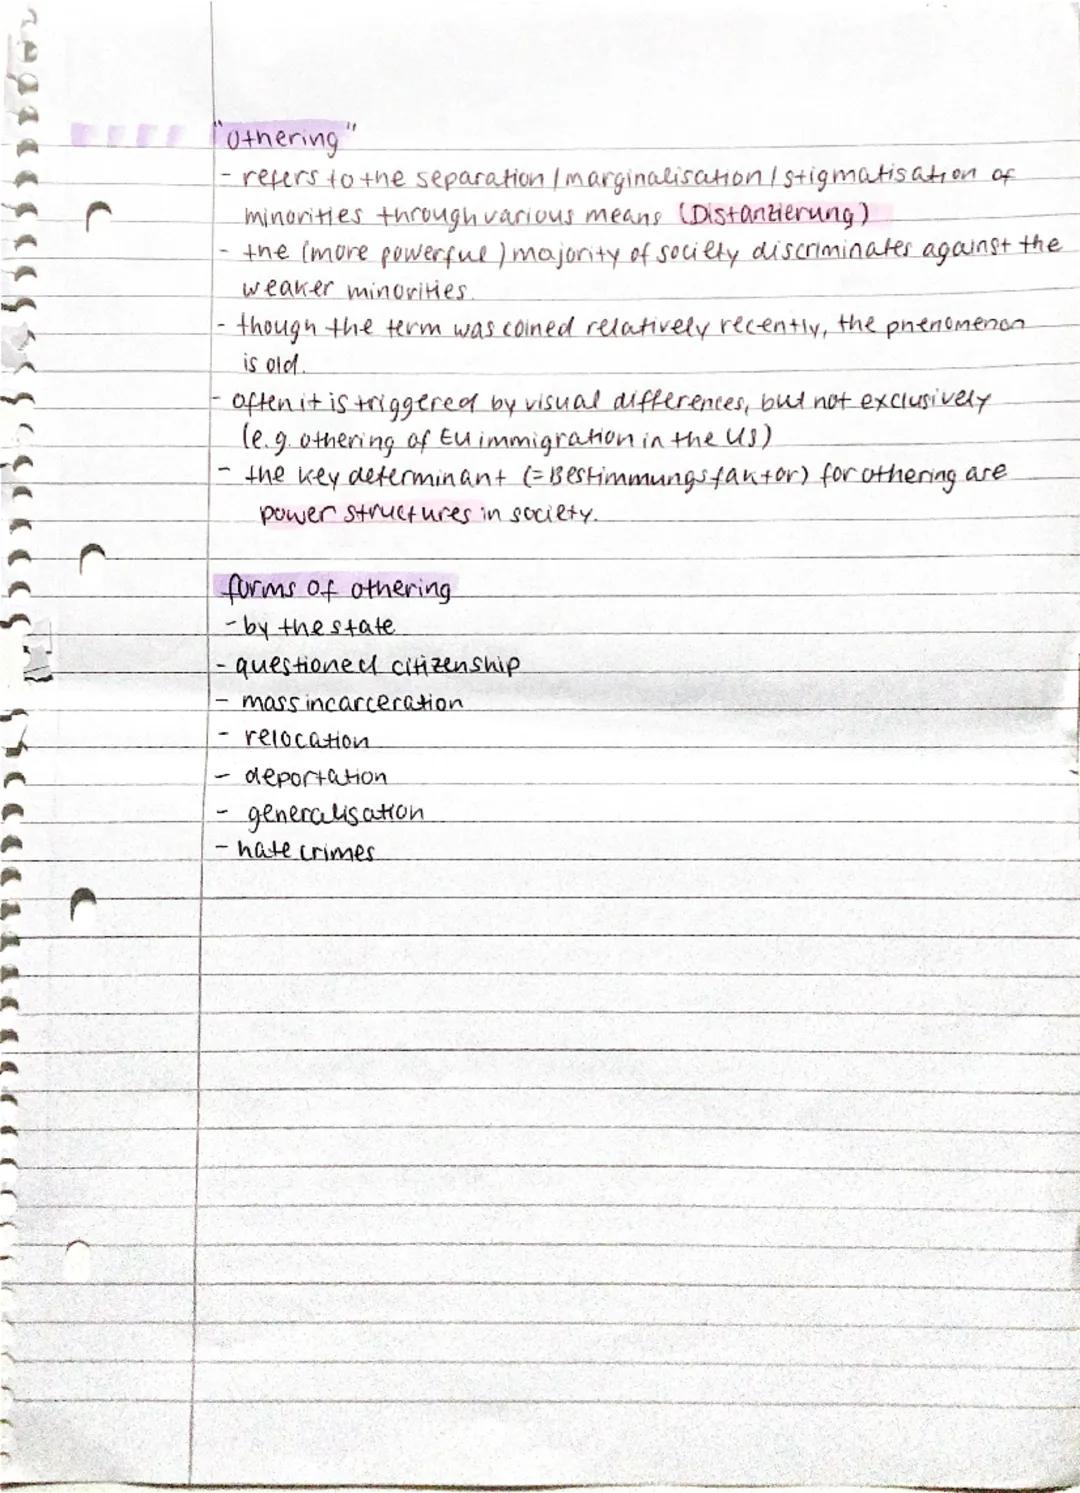 "Othering"
- refers to the separation / marginalisation / stigmatisation of
minorities through various means (Distanzierung)
- the (more powerful) majority of society discriminates against the
weaker minorities.
- though the term was coined relatively recently, the phenomenon
is old.
- often it is triggered by visual differences, but not exclusively
(e.g. othering of EU immigration in the US)
- the key determinant (=Bestimmungsfaktor) for othering are
power structures in society.
forms of othering
- by the state
- questioned citizenship
- mass incarceration
- relocation
- deportation
- generalisation
- hate crimes